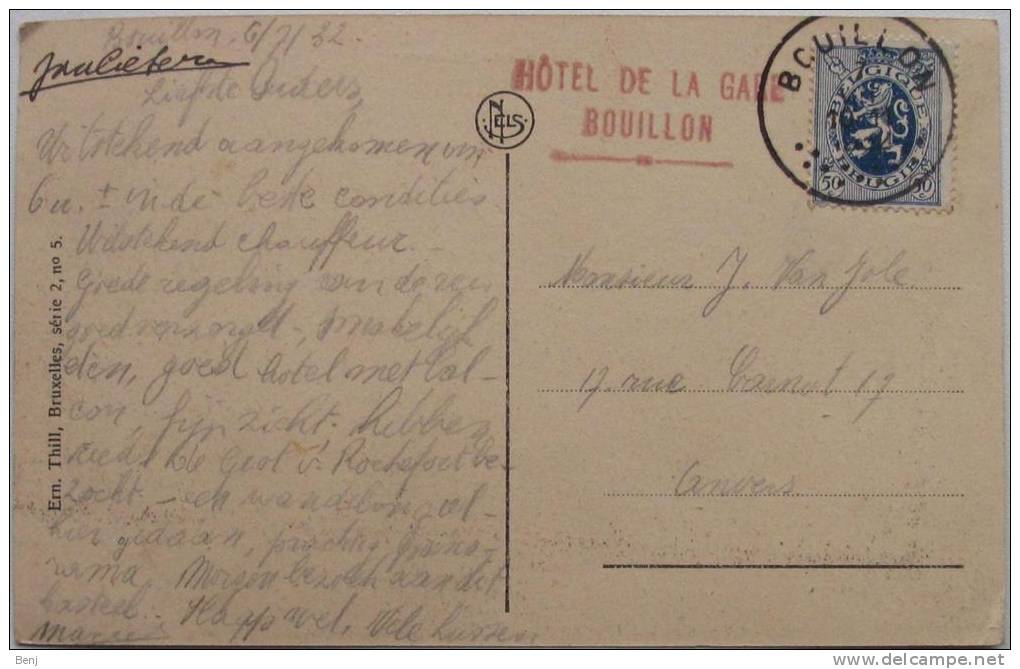 Bouillon, 6/7/32.
Liefste Ouders,
Uitstekend aangekomen om
6 u. ± in de beste condities
Uitstekend chauffeur. -
Goede regeling van de reis
goed verzorgd -
den, goed hotel met bal-
con, fijn zicht. hebben
reeds de Grot v. Rochefort be-
zocht - een wandeling al-
hier gedaan, prachtig pano-
rama, Morgen bezoek aan het
kasteel. Slaapwel, Vele kussen
Maria
Ern. Thill, Bruxelles, série 2, no 5.
NELS
HÔTEL DE LA GARE
BOUILLON
BOUILLON
BELGIQUE
BELGIE
50 50
Monsieur J. Van Jole
17 rue Carnot 17
Anvers
Benj
delcampe.net